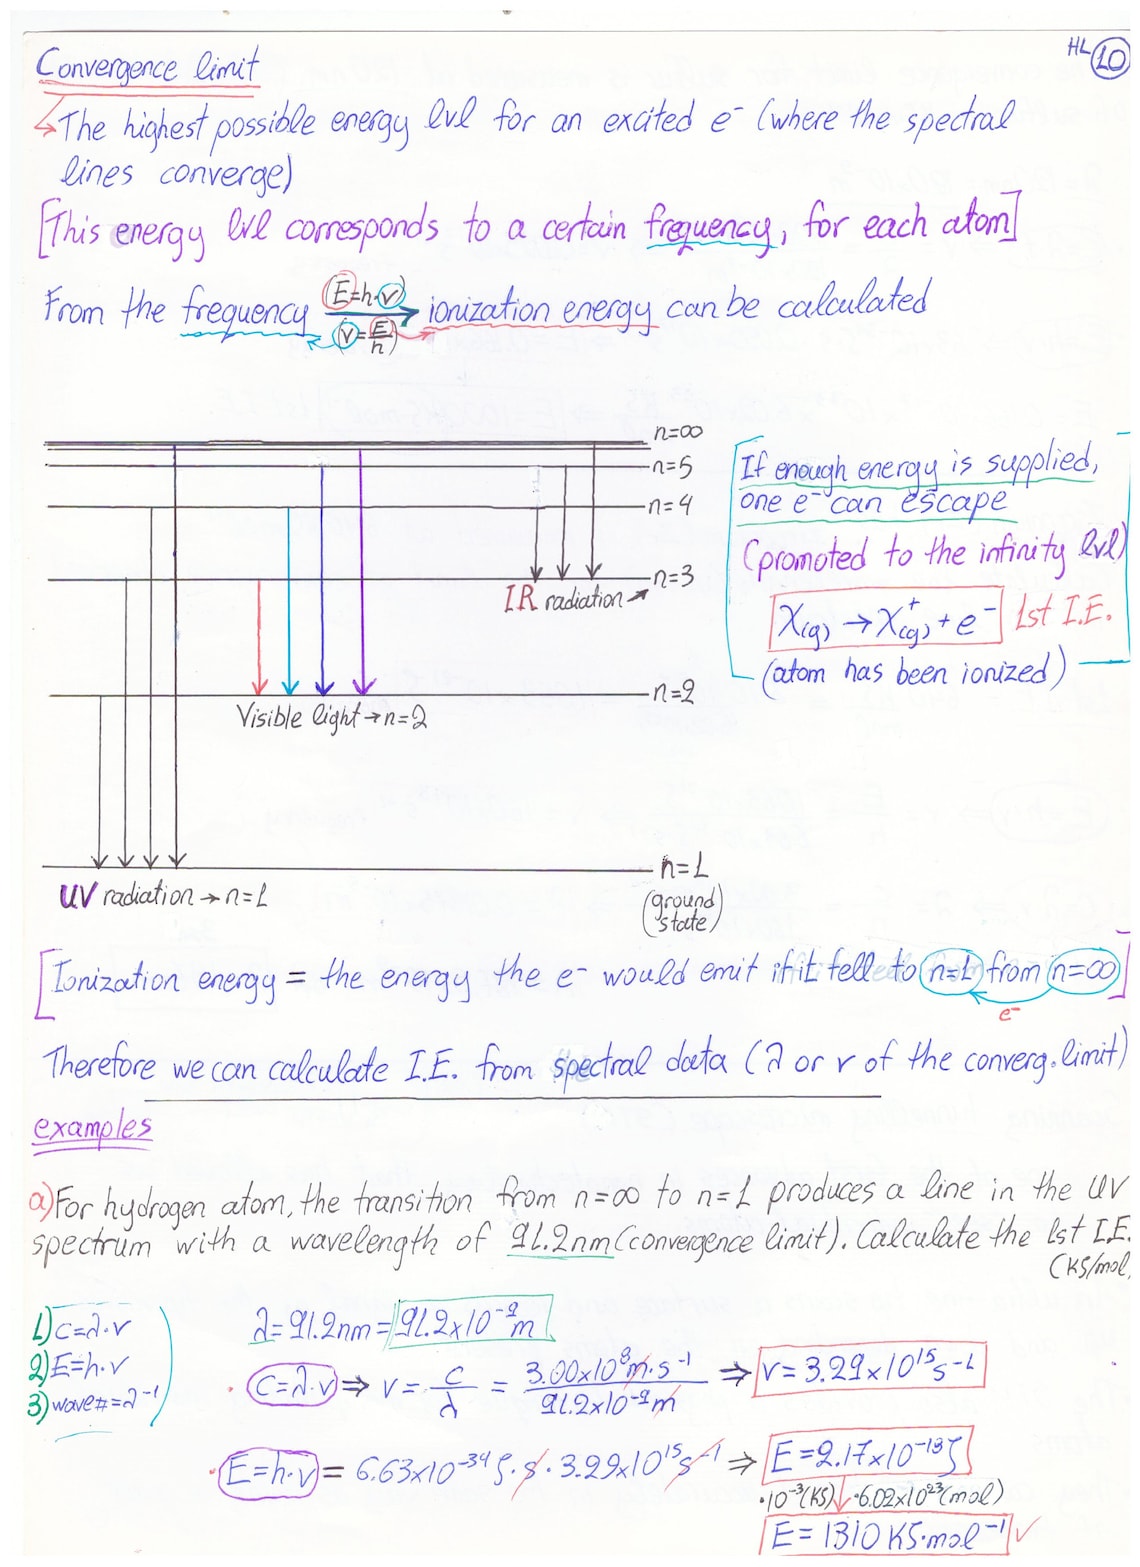 HL 10
Convergence limit
↳ The highest possible energy lvl for an excited e⁻ (where the spectral
lines converge)
[This energy lvl corresponds to a certain frequency, for each atom]
From the frequency (E=h·ν) (ν=E/h) → ionization energy can be calculated
n=∞
n=5
n=4
n=3
IR radiation →
n=2
Visible light → n=2
n=1
(ground
state)
UV radiation → n=1
If enough energy is supplied,
one e⁻ can escape
(promoted to the infinity lvl)
X(g) → X⁺(g) + e⁻ 1st I.E.
(atom has been ionized)
[Ionization energy = the energy the e⁻ would emit if it fell to n=1 from n=∞]
e⁻
Therefore we can calculate I.E. from spectral data (λ or ν of the converg. limit)
examples
a) For hydrogen atom, the transition from n=∞ to n=1 produces a line in the UV
spectrum with a wavelength of 91.2nm (convergence limit). Calculate the 1st I.E.
(KJ/mol)
1) c=λ·ν
2) E=h·ν
3) wave#=λ⁻¹
λ=91.2nm=91.2x10⁻⁹m
· c=λ·ν ⇒ ν= c/λ = 3.00x10⁸m·s⁻¹/91.2x10⁻⁹m ⇒ ν=3.29x10¹⁵s⁻¹
· E=h·ν = 6.63x10⁻³⁴J·s·3.29x10¹⁵s⁻¹ ⇒ E=2.17x10⁻¹⁸J
·10⁻³(KJ) ↓ ·6.02x10²³(mol)
E=1310KJ·mol⁻¹ ✓